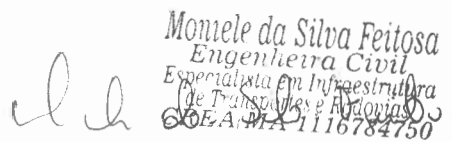 Moniele da Silva Feitosa
Engenheira Civil
Especialista em Infraestrutura
de Transportes e Rodovias
CREA/MA 1116784750